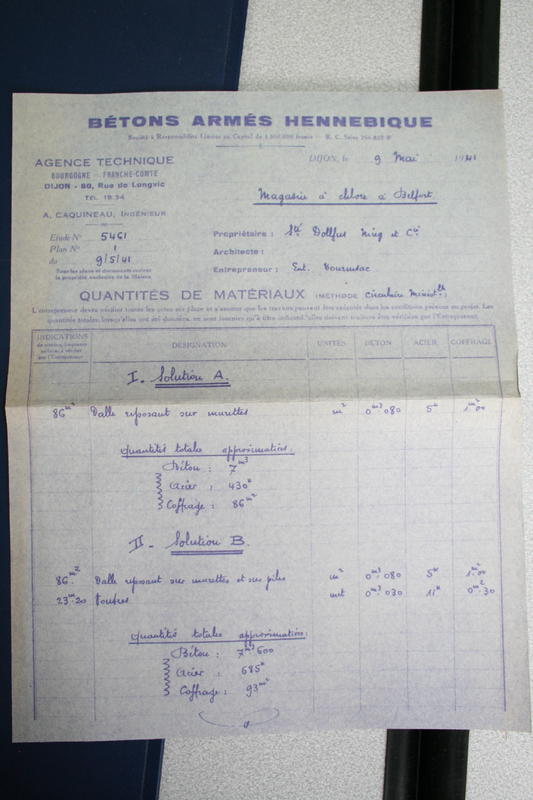 BÉTONS ARMÉS HENNEBIQUE
Société à Responsabilité Limitée au Capital de francs — R. C. Seine
AGENCE TECHNIQUE
BOURGOGNE - FRANCHE-COMTÉ
DIJON - 80, Rue de Longvic
TÉL. 19.34
A. CAQUINEAU, INGÉNIEUR
DIJON, le 9 Mai 1941
Magasin à chlore à Belfort.
Etude N° 5461
Plan N° 1
du 9/5/41
Tous les plans et documents restent
la propriété exclusive de la Maison
Propriétaire : Sté Dollfus Mieg et Cie
Architecte :
Entrepreneur : Ent.
QUANTITÉS DE MATÉRIAUX (MÉTHODE Circulaire Minist lle)
L'entrepreneur devra vérifier toutes les cotes sur place et s'assurer que les travaux peuvent être exécutés dans les conditions prévues au projet. Les
quantités totales, lorsqu'elles ont été données, ne sont fournies qu'à titre indicatif, elles doivent toujours être vérifiées par l'Entrepreneur.
INDICATIONS DÉSIGNATION UNITÉS BÉTON ACIER COFFRAGE
I. Solution A.
86 m² Dalle reposant sur murettes m² 0 m³ 080 5 k 1 m² 00
Quantités totales approximatives.
Béton : 7 m³
Acier : 430 k
Coffrage : 86 m²
II - Solution B.
86 m² Dalle reposant sur murettes et sur piles m² 0 m³ 080 5 k 1 m² 00
23 m. 20 Poutres mt 0 m³ 030 11 k 0 m² 30
Quantités totales approximatives :
Béton : 7 m³ 600
Acier : 685 k
Coffrage : 93 m²